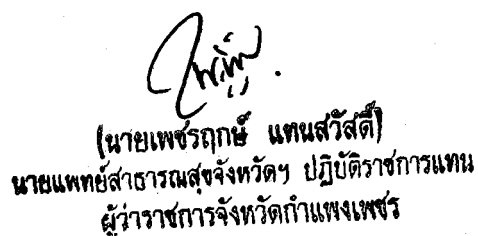 (นายเพชรฤกษ์ แทนสวัสดิ์)
นายแพทย์สาธารณสุขจังหวัดฯ ปฏิบัติราชการแทน
ผู้ว่าราชการจังหวัดกำแพงเพชร